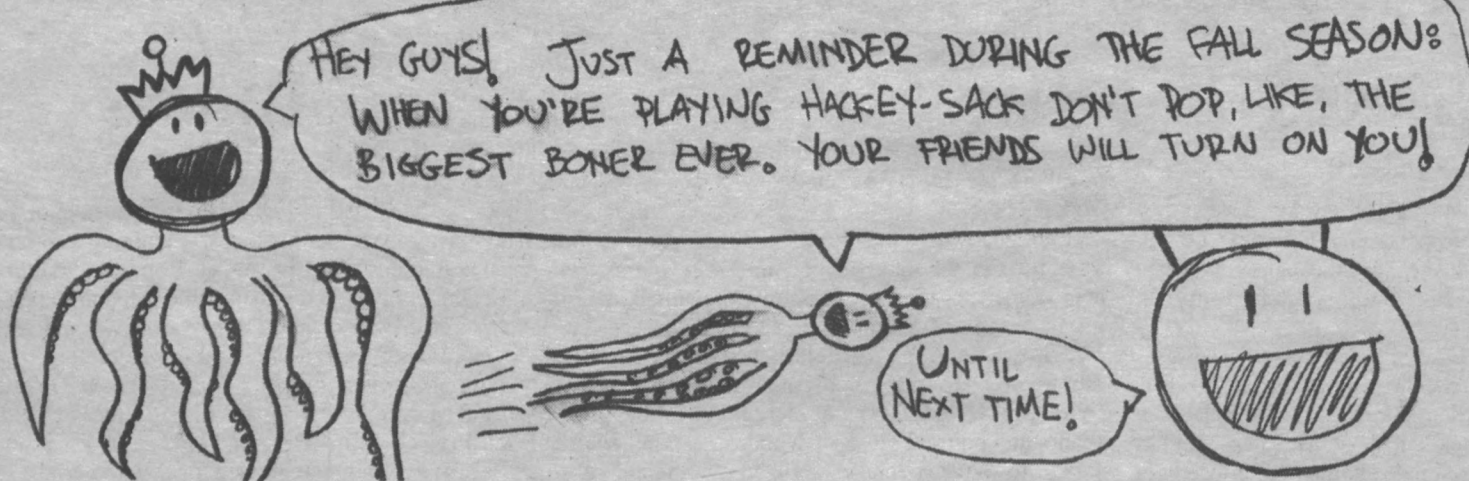 HEY GUYS! JUST A REMINDER DURING THE FALL SEASON:
WHEN YOU'RE PLAYING HACKEY-SACK DON'T POP, LIKE, THE
BIGGEST BONER EVER. YOUR FRIENDS WILL TURN ON YOU!
UNTIL
NEXT TIME!